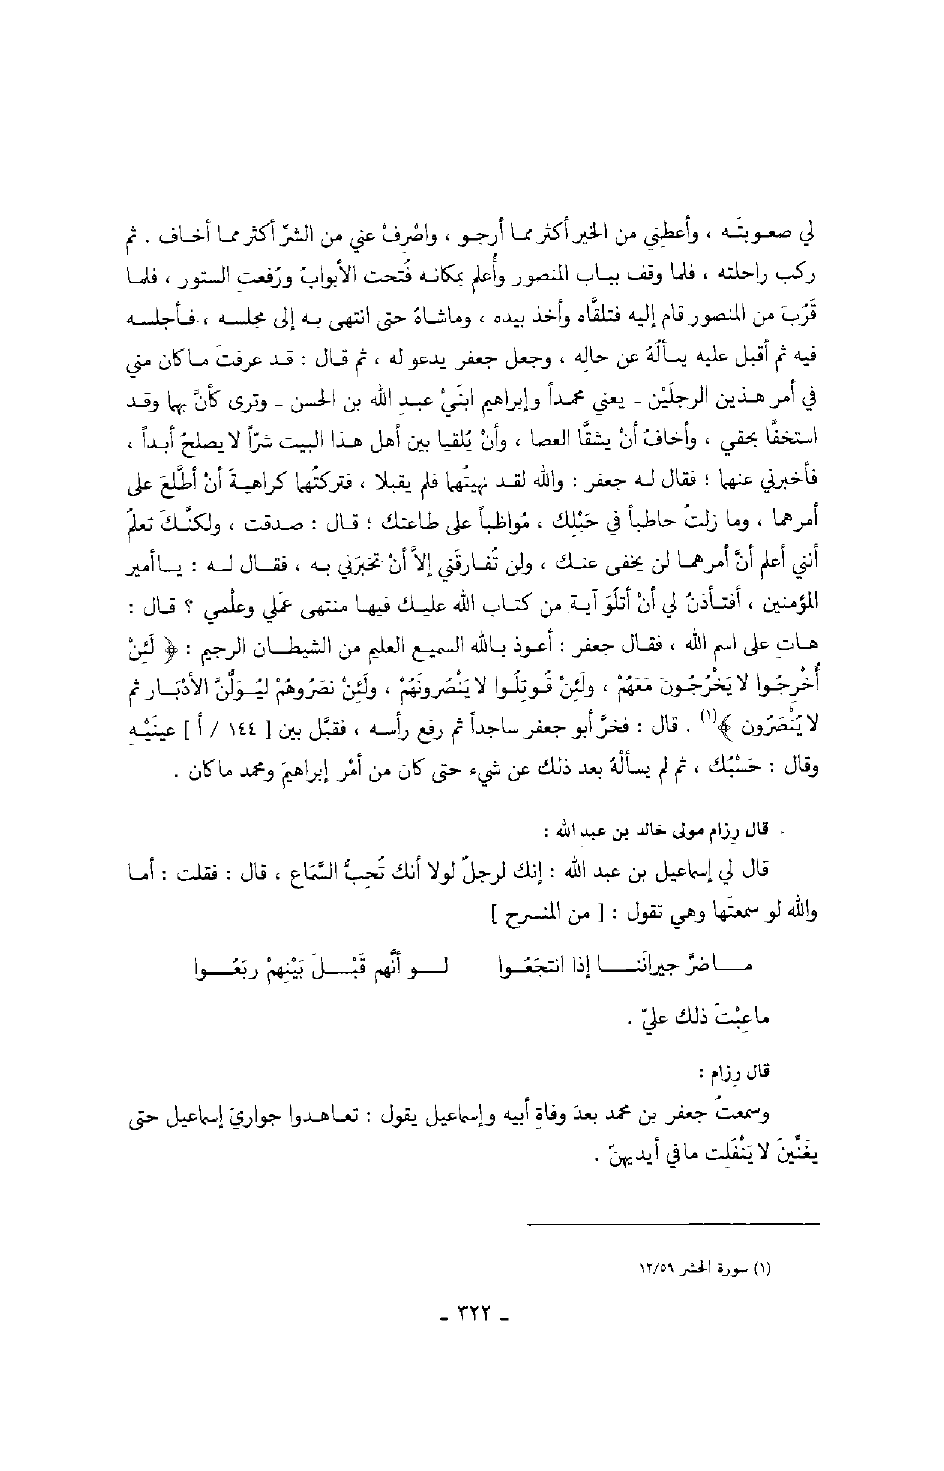 لي صعوبتَه ، وأعطِني من الخير أكثر مما أرجو ، واصْرِفْ عني من الشرّ أكثر مما أخاف . ثم
ركب راحلته ، فلما وقف بباب المنصور وأُعلم بمكانه فُتحت الأبوابُ ورُفعت الستور ، فلما
قَرُبَ من المنصور قام إليه فتلقَّاه وأخذ بيده ، وماشاهُ حتى انتهى به إلى مجلسه ، فأجلسه
فيه ثم أقبل عليه يسألُهُ عن حالِه ، وجعل جعفر يدعو له ، ثم قال : قد عرفتَ ماكان مني
في أمر هذين الرجلَيْن ـ يعني محمداً وإبراهيم ابنَيْ عبد الله بن الحسن ـ وترى كأنَّ بهما وقد
استخفَّا بحقي ، وأخافُ أنْ يشقَّا العصا ، وأنْ يُلقيا بين أهل هذا البيت شرّاً لا يصلحُ أبداً ،
فأخبرني عنهما ؛ فقال له جعفر : والله لقد نهيتُهما فلم يقبلا ، فتركتُهما كراهيةَ أنْ أطَّلعَ على
أمرهما ، وما زلتُ حاطباً في حَبْلِك ، مُواظباً على طاعتك ؛ قال : صدقت ، ولكنَّكَ تعلمُ
أنني أعلم أنَّ أمرهما لن يخفى عنك ، ولن تُفارقَني إلاَّ أنْ تخبرَني به ، فقال له : ياأمير
المؤمنين ، أفتأذنُ لي أنْ أتلُوَ آية من كتاب الله عليك فيها منتهى عَمَلي وعلمي ؟ قال :
هات على اسم الله ، فقال جعفر : أعوذ بالله السميع العليم من الشيطان الرجيم : ﴿ لَئِنْ
أُخْرِجُوا لا يَخْرُجُونَ مَعَهُمْ ، ولَئِنْ قُوتِلُوا لا يَنْصُرونَهُمْ ، ولَئِنْ نَصَرُوهُمْ لَيُوَلُّنَّ الأدْبَارَ ثم
لا يُنْصَرُون ﴾(١) . قال : فخرَّ أبو جعفر ساجداً ثم رفع رأسه ، فقبَّل بين [ ١٤٤ / أ ] عينَيْه
وقال : حَسْبُك ، ثم لم يسألْهُ بعد ذلك عن شيء حتى كان من أمْرِ إبراهيمَ ومحمد ماكان .
قال رِزام مولى خالد بن عبد الله :
قال لي إسماعيل بن عبد الله : إنك لرجلٌ لولا أنك تُحِبُّ السَّماع ، قال : فقلت : أما
والله لو سمعتَها وهي تقول : [ من المنسرح ]
ماضرَّ جيرانَنا إذا انتجَعُوا لو أنَّهم قَبْلَ بَيْنِهمْ رَبَعُوا
ماعِبْتَ ذلك عليّ .
قال رِزام :
وسمعتُ جعفر بن محمد بعدَ وفاةِ أبيه وإسماعيل يقول : تعاهدوا جواريَ إسماعيل حتى
يغَنِّينَ لا يَنْفَلِت مافي أيديهنّ .
(١) سورة الحشر ١٢/٥٩
ـ ٣٢٢ ـ